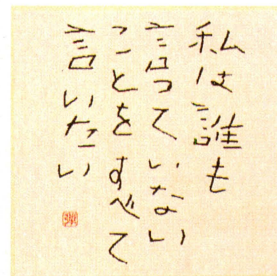 私は誰も
言っていない
ことをすべて
言いたい